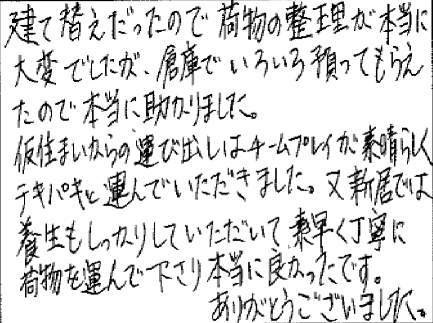 建て替えだったので荷物の整理が本当に
大変でしたが、倉庫でいろいろ預ってもらえ
たので本当に助かりました。
仮住まいからの運び出しはチームプレイが素晴らしく
テキパキと運んでいただきました。又新居では
養生もしっかりしていただいて素早く丁寧に
荷物を運んで下さり本当に良かったです。
ありがとうございました。